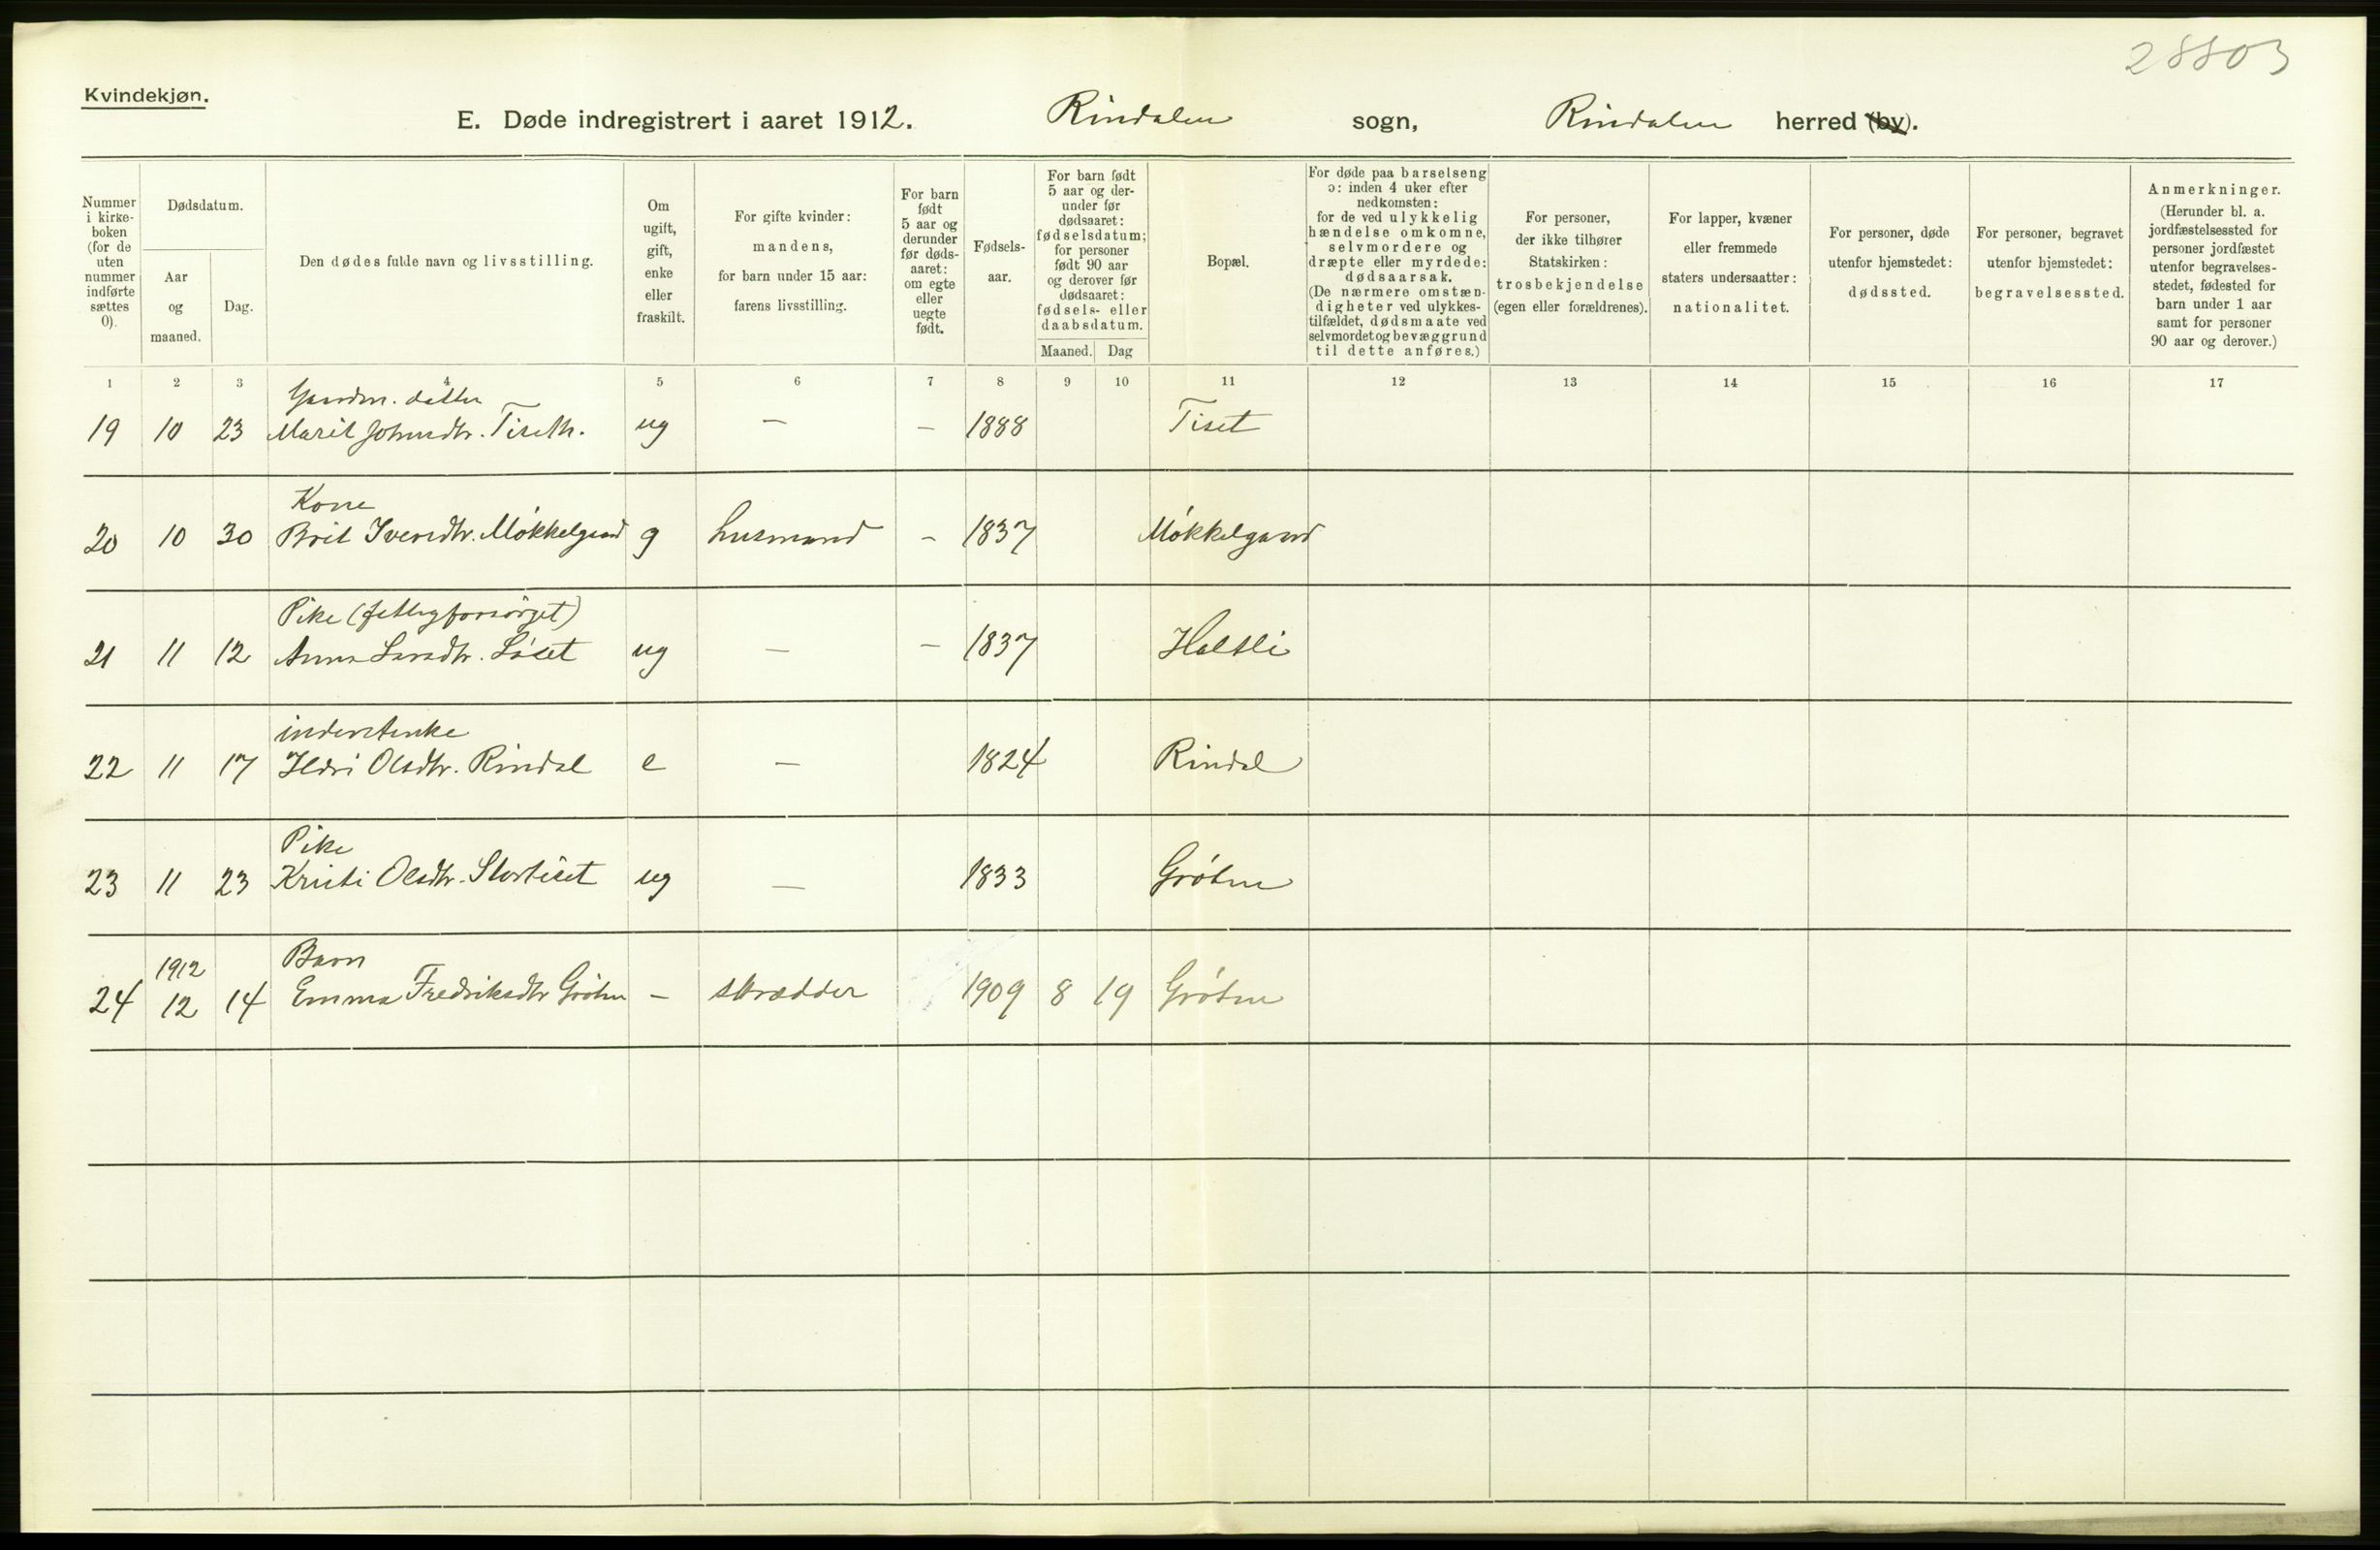 28803
Kvindekjøn.
E. Døde indregistrert i aaret 1912. Rindalen sogn, Rindalen herred (by).
Nummer i kirke-boken (for de uten nummer indførte sættes 0).
Dødsdatum.
Aar og maaned.
Dag.
Den dødes fulde navn og livsstilling.
Om ugift, gift, enke eller fraskilt.
For gifte kvinder: mandens, for barn under 15 aar: farens livsstilling.
For barn født 5 aar og derunder før døds-aaret: om egte eller uegte født.
Fødsels-aar.
For barn født 5 aar og der-under før dødsaaret: fødselsdatum; for personer født 90 aar og derover før dødsaaret: fødsels- eller daabsdatum.
Maaned. Dag
Bopæl.
For døde paa barselseng ɔ: inden 4 uker efter nedkomsten: for de ved ulykkelig hændelse omkomne, selvmordere og dræpte eller myrdede: dødsaarsak. (De nærmere omstæn-digheter ved ulykkes-tilfældet, dødsmaate ved selvmordet og bevæggrund til dette anføres.)
For personer, der ikke tilhører Statskirken: trosbekjendelse (egen eller forældrenes).
For lapper, kvæner eller fremmede staters undersaatter: nationalitet.
For personer, døde utenfor hjemstedet: dødssted.
For personer, begravet utenfor hjemstedet: begravelsessted.
Anmerkninger. (Herunder bl. a. jordfæstelsessted for personer jordfæstet utenfor begravelses-stedet, fødested for barn under 1 aar samt for personer 90 aar og derover.)
1 2 3 4 5 6 7 8 9 10 11 12 13 14 15 16 17
Gaardm. datter
19 10 23 Marit Johnsdtr. Tiseth. ug — — 1888 Tiset
Kone
20 10 30 Brit Iversdtr. Møkkelgaard g husmand – 1837 Møkkelgaard
Pike (fattigforsørget)
21 11 12 Anne Larsdtr. Løset ug — – 1837 Haltli
inderstenke
22 11 17 Ildri Olsdtr. Rindal e — 1824 Rindal
Pike
23 11 23 Kristi Olsdtr. Stortiset ug — 1833 Grøten
1912 Barn
24 12 14 Emma Fredriksdtr Grøten – skrædder 1909 8 19 Grøten